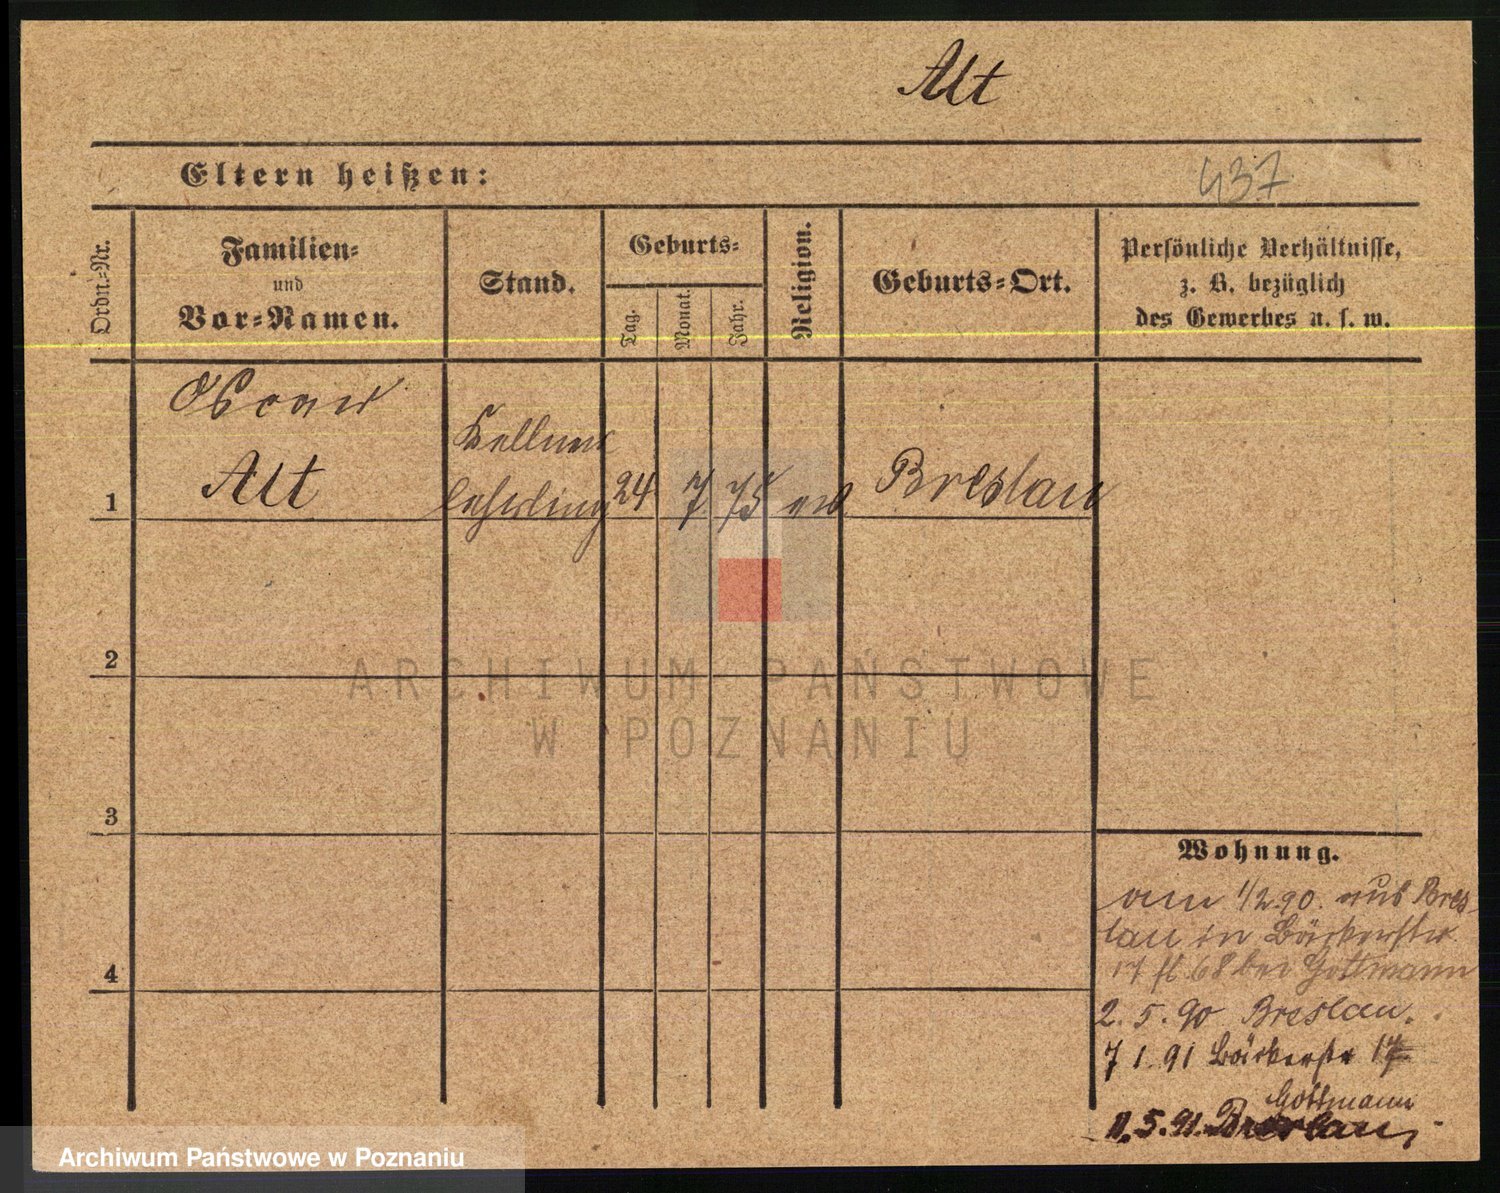 Alt
Eltern heißen:
437
Ordn.-Nr.
Familien-
und
Vor-Namen.
Stand.
Geburts-
Tag.
Monat.
Jahr.
Religion.
Geburts-Ort.
Persönliche Verhältnisse,
z. B. bezüglich
des Gewerbes u. s. w.
Oscar
Alt
Kellner
lehrling
1
24
7
75
ev
Breslau
2
ARCHIWUM PAŃSTWOWE
W POZNANIU
3
4
Wohnung.
1/2.90. aus Bres-
lau in Bäckerstr
17 bei Gottmann
2.5.90 Breslau.
7 1.91 Bäckerstr 17
Gottmann
5.91. Breslau,
Archiwum Państwowe w Poznaniu